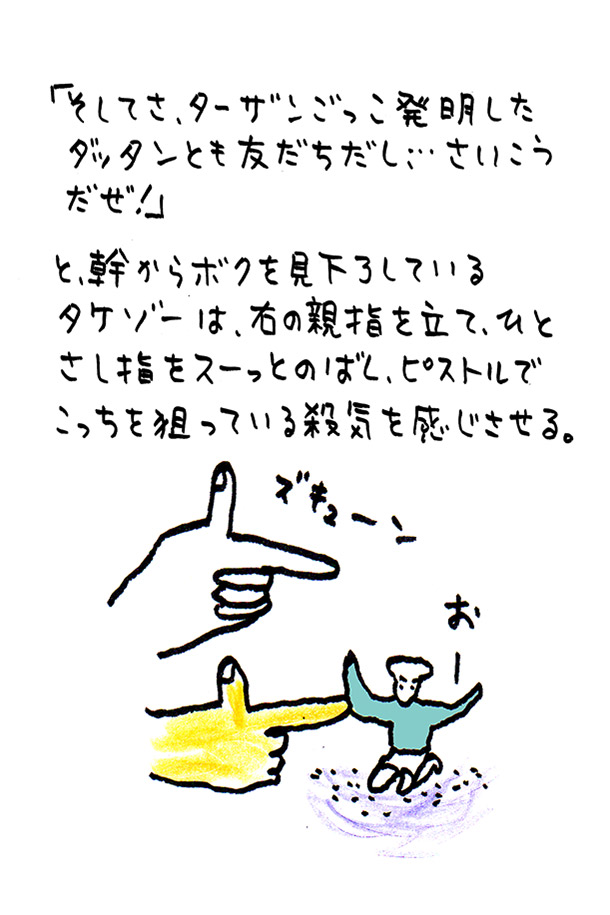 「そしてさ、ターザンごっこ発明した
ダッタンとも友だちだし、…さいこう
だぜ!」
と、幹からボクを見下ろしている
タケゾーは、右の親指を立て、ひと
さし指をスーっとのばし、ピストルで
こっちを狙っている殺気を感じさせる。
ズキューン
おー